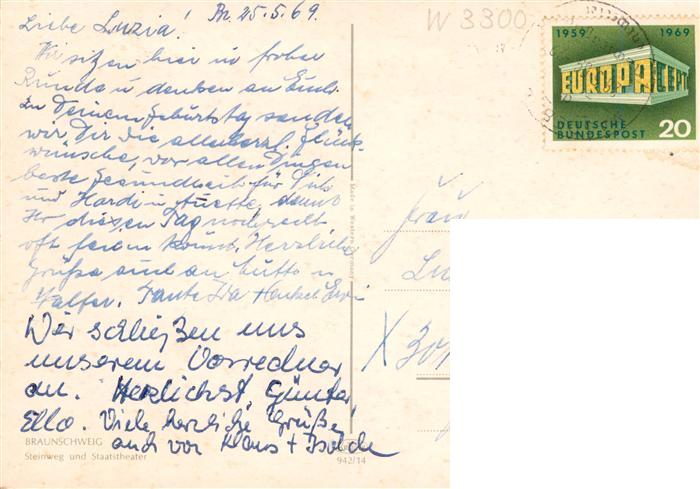 Br. 25.5.69.
Liebe Luzia!
Wir sitzen hier in froher
Runde u denken an Euch.
Zu Deinem Geburtstag senden
wir Dir die allerherzl. Glück-
wünsche, vor allen Dingen
beste Gesundheit für Dich
und Hardi u Anette, damit
Ihr diesen Tag noch recht
oft feiern könnt. Herzliche
Grüße auch an Mutti u
Walter. Tante Ida Henkel
Wir schließen uns
unserem Vorredner
an. Herzlichst, Günter
Ella. Viele herzliche Grüße
auch von Klaus + Isolde
BRAUNSCHWEIG
Steinweg und Staatstheater
942/14
Made in Western Germany
W 3300
1959 1969
EUROPA CEPT
DEUTSCHE
BUNDESPOST 20
Frau
Lu
X 30